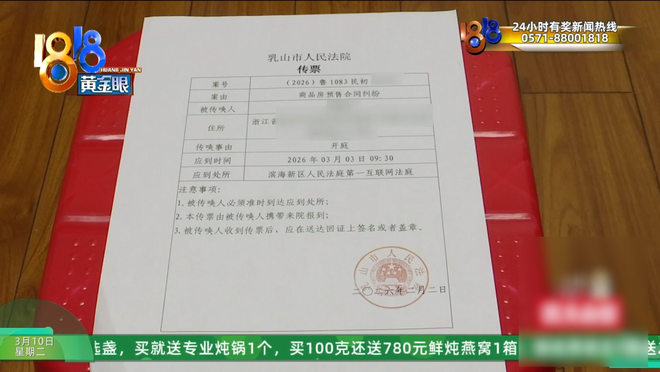 1818
HUANG JIN YAN
黄金眼
24小时有奖新闻热线
1818
0571-88001818
乳山市人民法院
传票
案号
(2026)鲁1083民初
案由
商品房预售合同纠纷
被传唤人
住所
浙江省
传唤事由
开庭
应到时间
2026年03月03日09:30
应到处所
滨海新区人民法庭第一互联网法庭
注意事项:
1.被传唤人必须准时到达应到处所;
2.本传票由被传唤人携带来院报到;
3.被传唤人收到传票后,应在送达回证上签名或者盖章。
乳山市人民法院
二〇二六年二月二日
3月10日
星期二
选盏,买就送专业炖锅1个,买100克还送780元鲜炖燕窝1箱
送